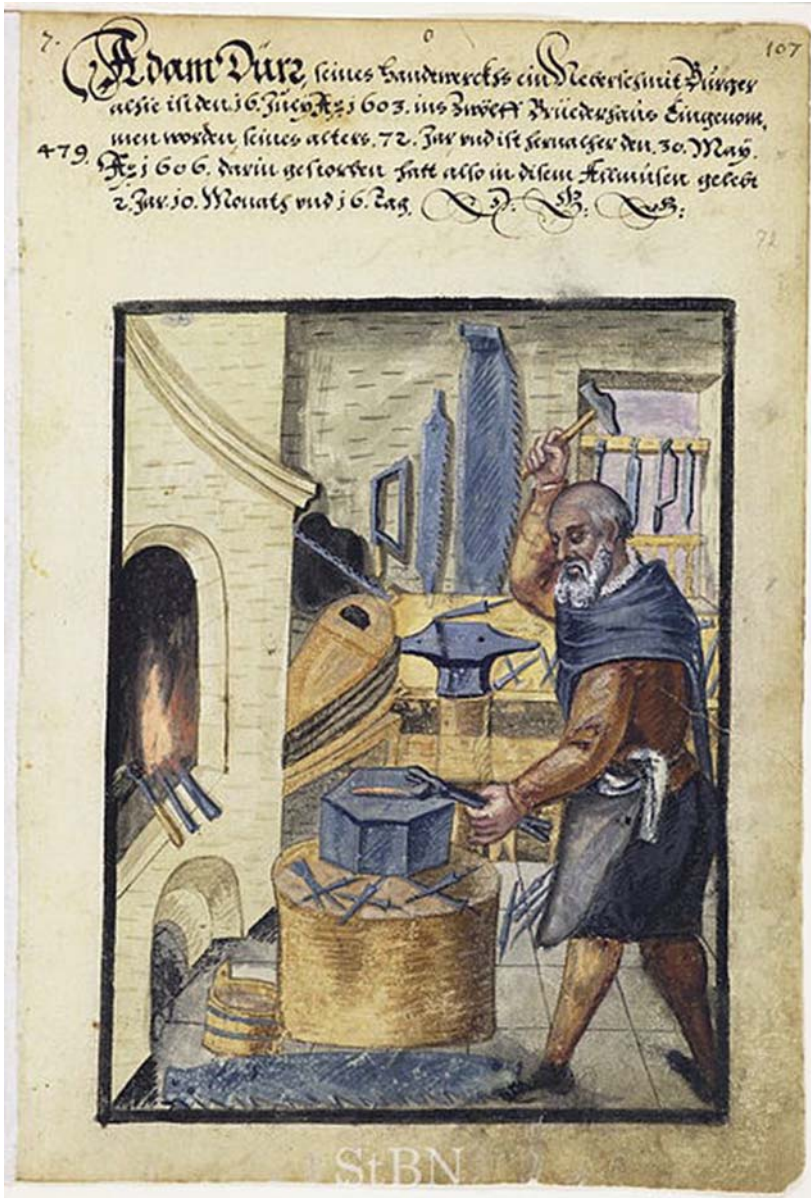 7. 0 107
Adam Dürr, seines handtwerckhs ein Neberschmit Burger
alhie ist den 16. July Ao: 1603. ins Zwölff Brüederhaus Eingenom,
men worden, seines alters. 72. Jar vnd ist hernacher den. 30. May.
479. Ao: 1606. darin gestorben hatt also in disem Allmusen gelebt
2. Jar. 10. Monath vnd 16. Tag. D: G: G:
72
StBN